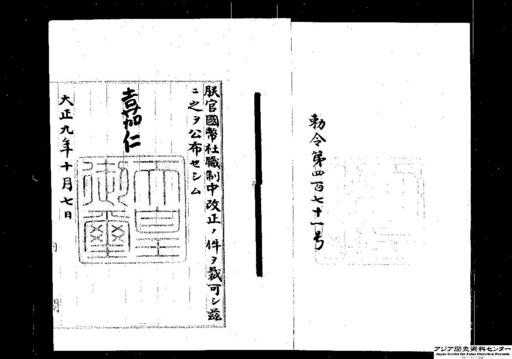 勅令第四百七十一号
朕官國幣社職制中改正ノ件ヲ裁可シ茲
ニ之ヲ公布セシム
嘉仁
天皇
御璽
大正九年十月七日
アジア歴史資料センター
Japan Center for Asian Historical Records